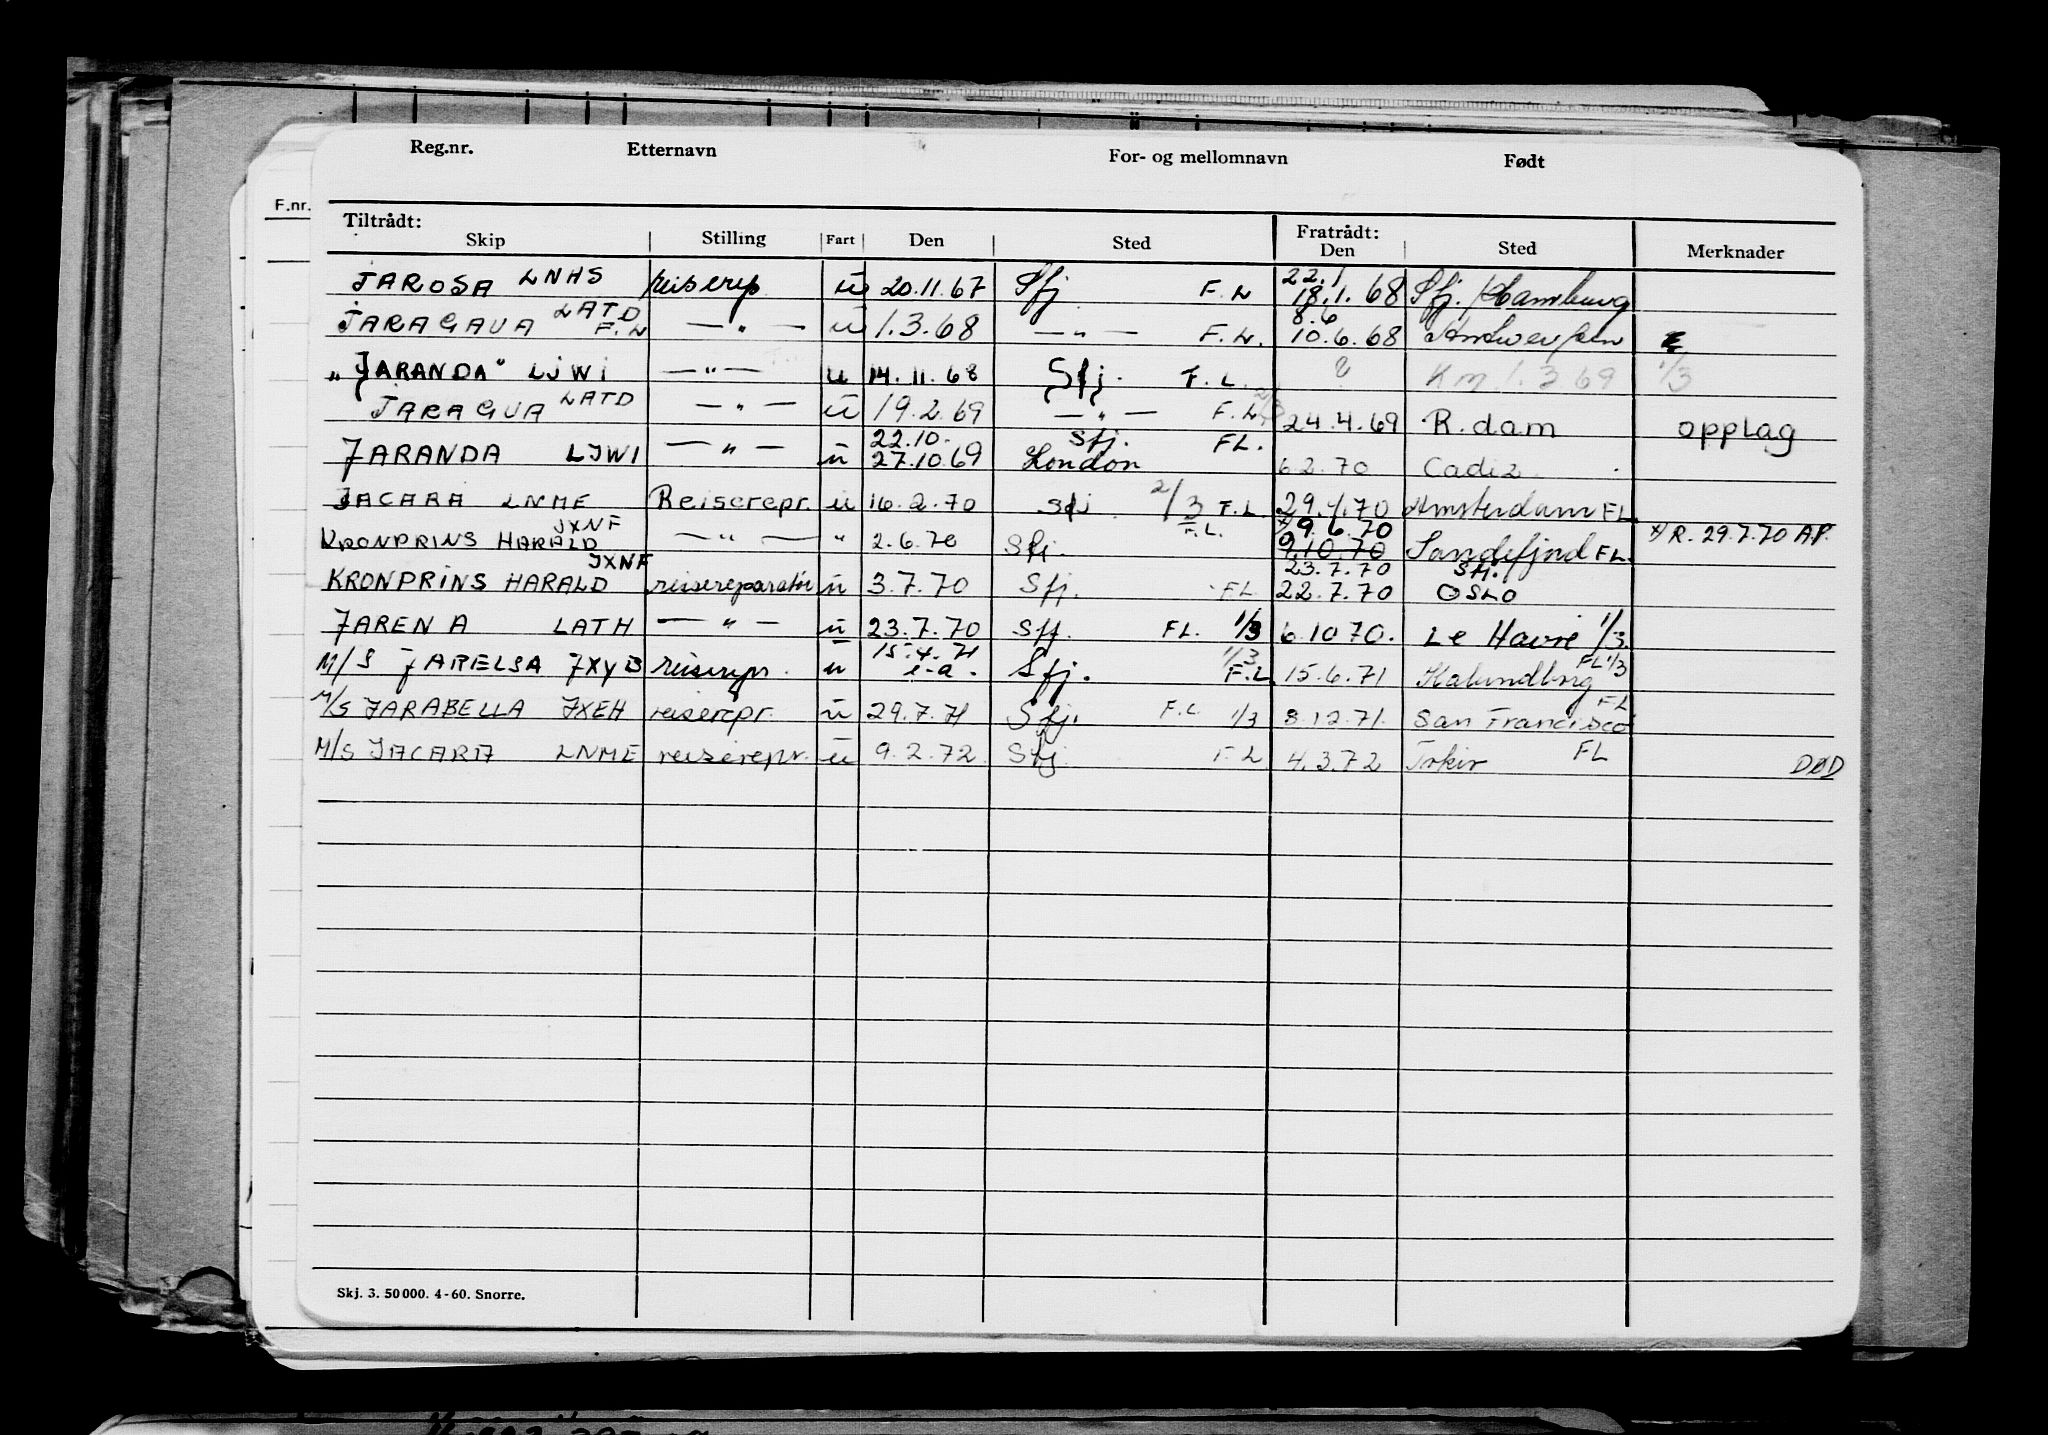 Reg.nr. Etternavn For- og mellomnavn Født
F.nr.
Tiltrådt: Fratrådt:
Skip Stilling Fart Den Sted Den Sted Merknader
JAROSA LNHS reiserep. u 20.11.67 Sfj F.L 22.1 18.1.68 Sfj. / Hamburg
JARAGAUA LATD F.L — " — u 1.3.68 — " — F.L. 8.6 10.6.68 Antwerpen
"JARANDA" LJWI — " — u 14.11.68 Sfj. F.L. ? Km 1.3.69 1/3
JARAGUA LATD — " — u 19.2.69 — " — F.L 24.4.69 R.dam opplag
JARANDA LJWI — " — u 22.10. 27.10.69 Sfj. London FL. 6.2.70 Cadiz
JACARA LNME Reiserepr. u 16.2.70 Sfj. 2/3 F.L. 29.4.70 Amsterdam FL
KRONPRINS HARALD JXNF — " — " 2.6.70 Sfj. F.L. x/ 9.6.70 9.10.70 Sandefjord FL. x/ R. 29.7.70 AP.
KRONPRINS HARALD JXNF reisereparatør u 3.7.70 Sfj. FL 23.7.70 22.7.70 Sfj. OSLO
JARENA LATH — " — u 23.7.70 Sfj. FL. 1/3 6.10 70. Le Havre 1/3.
M/S JARELSA JXYB reiserepr. u 15.4.71 Sfj. 1/3 F.L. 15.6.71 Kalundborg FL 1/3
M/S JARABELLA JXEH reiserepr. u 29.7.71 Sfj. F.L 1/3 8.12.71. San Francisco FL
M/S JACARA LNME reiserepr. u 9.2.72 Sfj. F.L 4.3.72 FL DØD
Skj. 3. 50000. 4-60. Snorre.